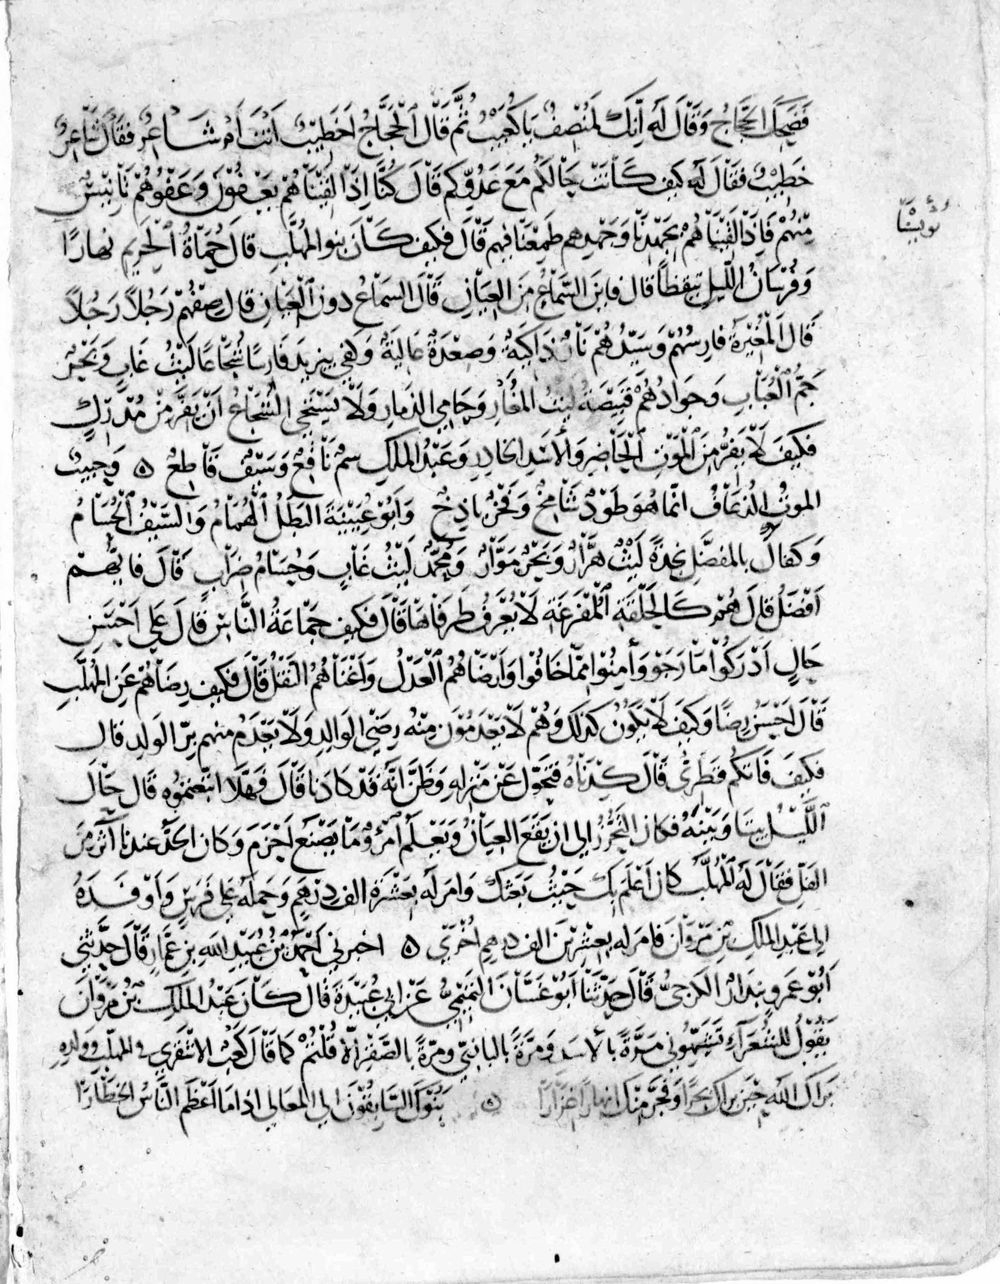 فَضَحِكَ الحَجَّاجُ وَقَالَ لَهُ اِنَّكَ لَمُنْصِفٌ يَا كَعْبُ ثُمَّ قَالَ الْحَجَّاجُ اَخَطِيْبٌ اَنْتَ اَمْ شَاعِرٌ فَقَالَ شَاعِرٌ
خَطِيْبٌ فَقَالَ لَهُ كَيْفَ كَانَتْ حَالُكُمْ مَعَ عَدُوِّكُمْ قَالَ كُنَّا اِذَا لَقِيْنَاهُمْ بِعَفْوِنَا وَعَفْوِهُمْ تَأْنِيْسٌ
مِنْهُمْ فَاِذَا لَقِيْنَاهُمْ بِجَهْدِنَا وَجَهْدِهِمْ طَمِعْنَا فِيهِمْ قَالَ فَكَيْفَ كَانَ بَنُو الْمُهَلَّبِ قَالَ حُمَاةُ الْحَرِيمِ نَهَارًا
وَفُرْسَانُ اللَّيْلِ تَيَقُّظاً قَالَ فَاَيْنَ السَّمَاعُ مِنَ الْعِيَانِ قَالَ السَّمَاعُ دُونَ الْعِيَانِ قَالَ صِفْهُمْ رَجُلاً رَجُلاً
قَالَ الْمُغِيْرَةُ فَارِسُهُمْ وَسَيِّدُهُمْ نَارٌ ذَاكِيَةٌ وَصَعْدَةٌ عَالِيَةٌ وَكَفَى بِيَزِيدَ فَارِسًا شُجَاعًا لَيْثُ غَابٍ وَبَحْرٌ
جَمُّ الْعُبَابِ وَجَوَادُهُمْ قَبِيْصَةُ لَيْثُ الْمُغَارِ وَحَامِي الذِّمَارِ وَلَا يَسْتَحِي الشُّجَاعُ اَنْ يَفِرَّ مِنْ مُدْرِكٍ
فَكَيْفَ لَا يَفِرُّ مِنَ الْمَوْتِ الْحَاضِرِ وَالْاَسَدِ الْخَادِرِ وَعَبْدُ الْمَلِكِ سُمٌّ نَاقِعٌ وَسَيْفٌ قَاطِعٌ ٥ وَحَبِيبٌ
الموتُ الذُّعَافُ انَّمَا هُوَ طَوْدٌ شَامِخٌ وَفَخْرٌ بَاذِخٌ وَاَبُو عُيَيْنَةَ البَطَلُ الْهُمَامُ وَالسَّيْفُ الْحُسَامُ
وَكَفَاكَ بِالْمُفَضَّلِ نَجْدَةً لَيْثٌ هَرَّارٌ وَبَحْرٌ مَوَّارٌ وَمُحَمَّدٌ لَيْثُ غَابٍ وَحُسَامُ ضِرَابٍ قَالَ فَايُّهُمْ
اَفْضَلُ قَالَ هُمْ كَالْحَلْقَةِ الْمُفْرَغَةِ لَا يُعْرَفُ طَرَفَاهَا قَالَ فَكَيْفَ جَمَاعَةُ النَّاسِ قَالَ عَلَى اَحْسَنِ
حَالٍ اَدْرَكُوا مَا رَجَوْا وَأَمِنُوا مِمَّا خَافُوا وَاَرْضَاهُمُ الْعَدْلُ وَاَغْنَاهُمُ النَّفَلُ قَالَ فَكَيْفَ رِضَاهُمْ عَنِ الْمُهَلَّبِ
قَالَ اَحْسَنُ رِضًا وَكَيْفَ لَا يَكُونُ كَذَلِكَ وَهُمْ لَا يَعْدَمُوْنَ مِنْهُ رِضَى الْوَالِدِ وَلَا يَعْدَمُ مِنْهُمْ بِرَّ الْوَلَدِ قَالَ
فَكَيْفَ فَاتَكُمْ قَطَرِيٌّ قَالَ كِدْنَاهُ فَتَحَوَّلَ عَنْ مَنْزِلِهِ وَظَنَّ اَنَّهُ قَدْ كَادَنَا قَالَ فَهَلَّا اتَّبَعْتُمُوهُ قَالَ حَالَ
اللَّيْلُ بَيْنَنَا وَبَيْنَهُ فَكَانَ التَّحَرُّزُ اِلَى اَنْ يَقَعَ الْعِيَانُ وَيَعْلَمَ اَمْرُؤٌ مَا يَصْنَعُ اَحْزَمَ وَكَانَ الْحَدُّ عِنْدَنَا آثَرَ مِنَ
الفَلِّ فَقَالَ لَهُ الْمُهَلَّبُ كَانَ اَعْلَمَ بِكَ حَيْثُ بَعَثَكَ وَاَمَرَ لَهُ بِعَشَرَةِ الفِ دِرْهَمٍ وَحَمَلَهُ عَلَى فَرَسٍ وَاَوْفَدَهُ
اِلَى عَبْدِ الْمَلِكِ بْنِ مَرْوَانَ فَاَمَرَ لَهُ بِعِشْرِينَ الفَ درهمٍ اُخْرَى ٥ اخبرني اَحْمَدُ بْنُ عُبَيْدِ اللهِ بْنِ عَمَّارٍ قَالَ حَدَّثَنِي
اَبُو عَمْرٍو بُنْدَارُ الْكَرَجِيُّ قَالَ حَدَّثَنَا اَبُو غَسَّانَ التَّمِيْمِيُّ عَنْ اَبِي عُبَيْدَةَ قَالَ كَانَ عَبْدُ الْمَلِكِ بْنُ مَرْوَانَ
يَقُوْلُ لِلشُّعَرَآءِ تُشَبِّهُونِي مَرَّةً بِالْاَسَدِ وَمَرَّةً بِالْبَازِي ومَرَّةً بِالصَّقْرِ اَلَا قُلْتُمْ كَمَا قَالَ كَعْبُ الاشْقَرِيُّ في المهلّب وولده
بَرَاكَ اللهُ حِيْنَ بَرَاكَ بَحْرًا وَفَجَّرَ مِنْكَ اَنْهَارًا غِزَارًا ٥ بَنُوْكَ السَّابِقُوْنَ اِلَى الْمَعَالِي اِذَا مَا اَعْظَمَ النَّاسُ الْخِطَارَا